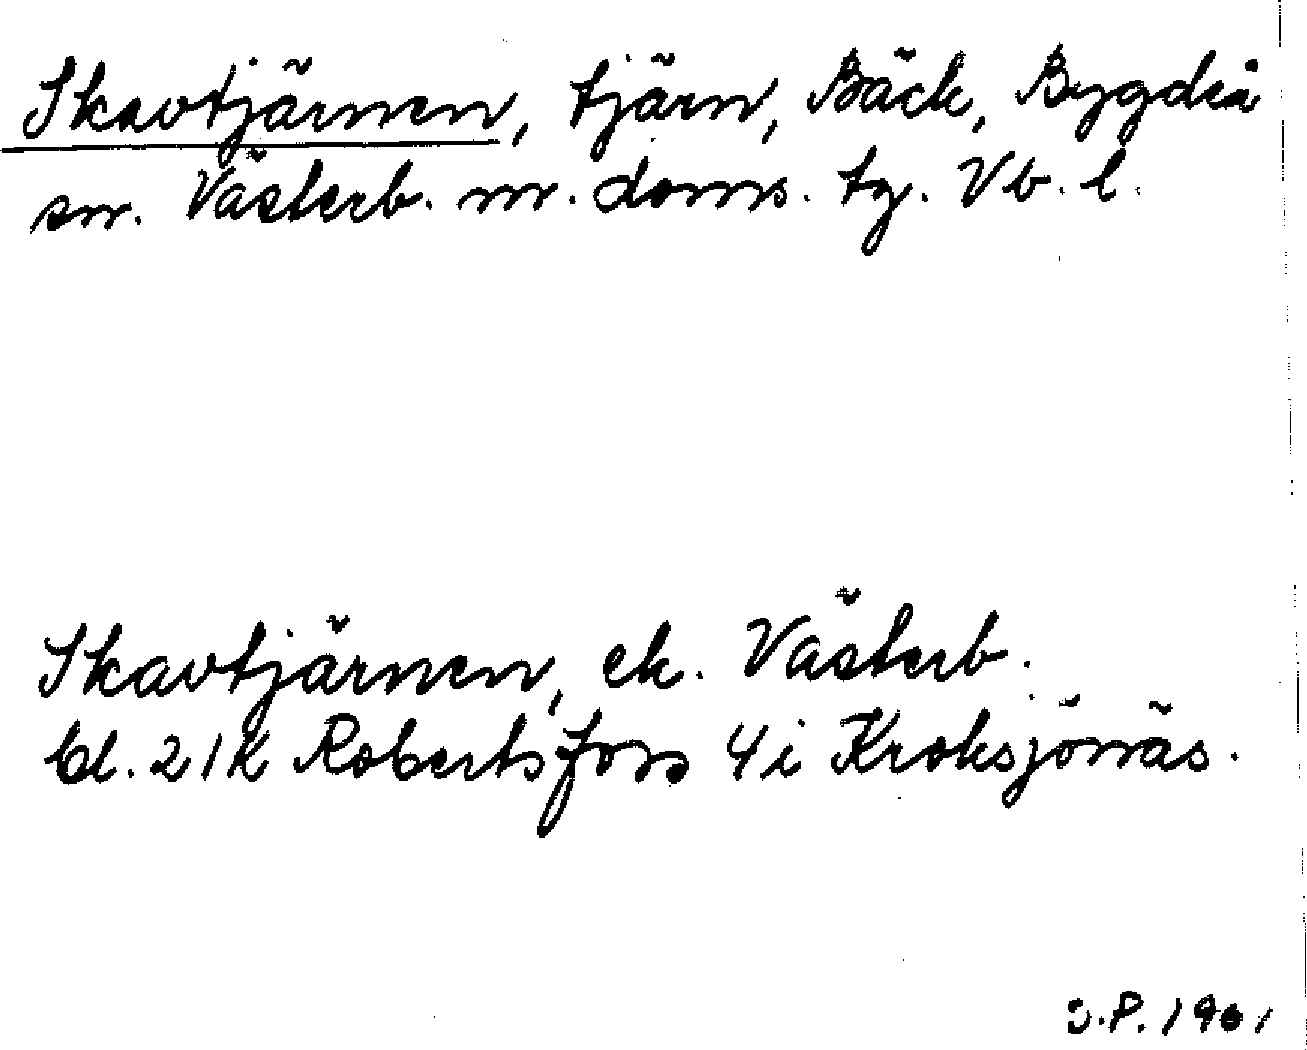 Skavtjärnen, tjärn, Bäck, Bygdeå
sn. Västerb. n. doms. tg. Vb. l.
Skavtjärnen, ek. Västerb.
bl. 21K Robertsfors 4 i Kroksjönäs.
S.P. 1961